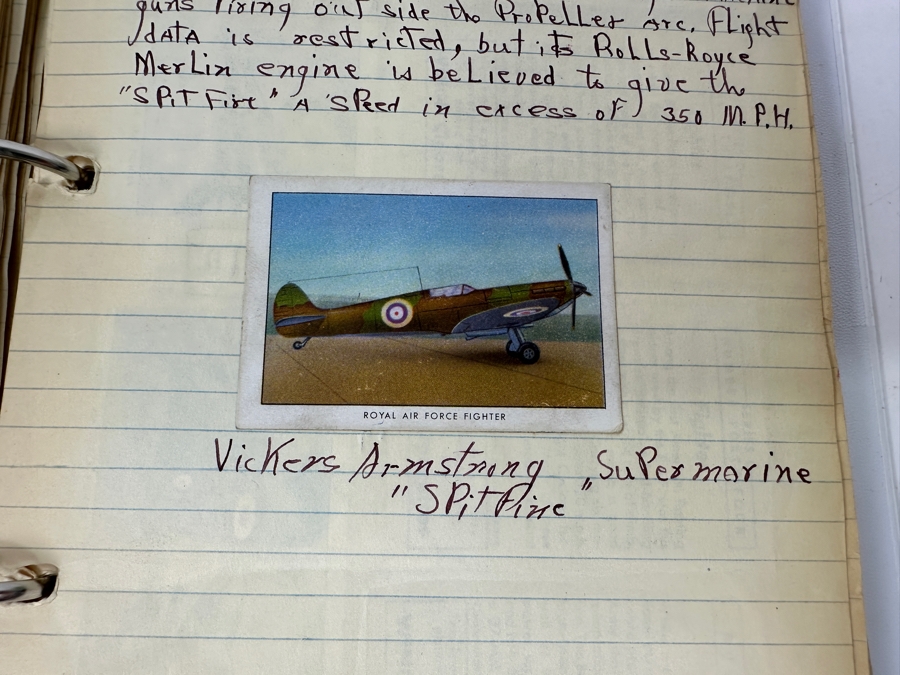 guns firing out side the Propeller Arc. Flight
data is restricted, but its Rolls-Royce
Merlin engine is believed to give the
"SPitFire" A SPeed in excess of 350 M.P.H.
ROYAL AIR FORCE FIGHTER
Vickers Armstrong „SuPermarine
"SPitFire